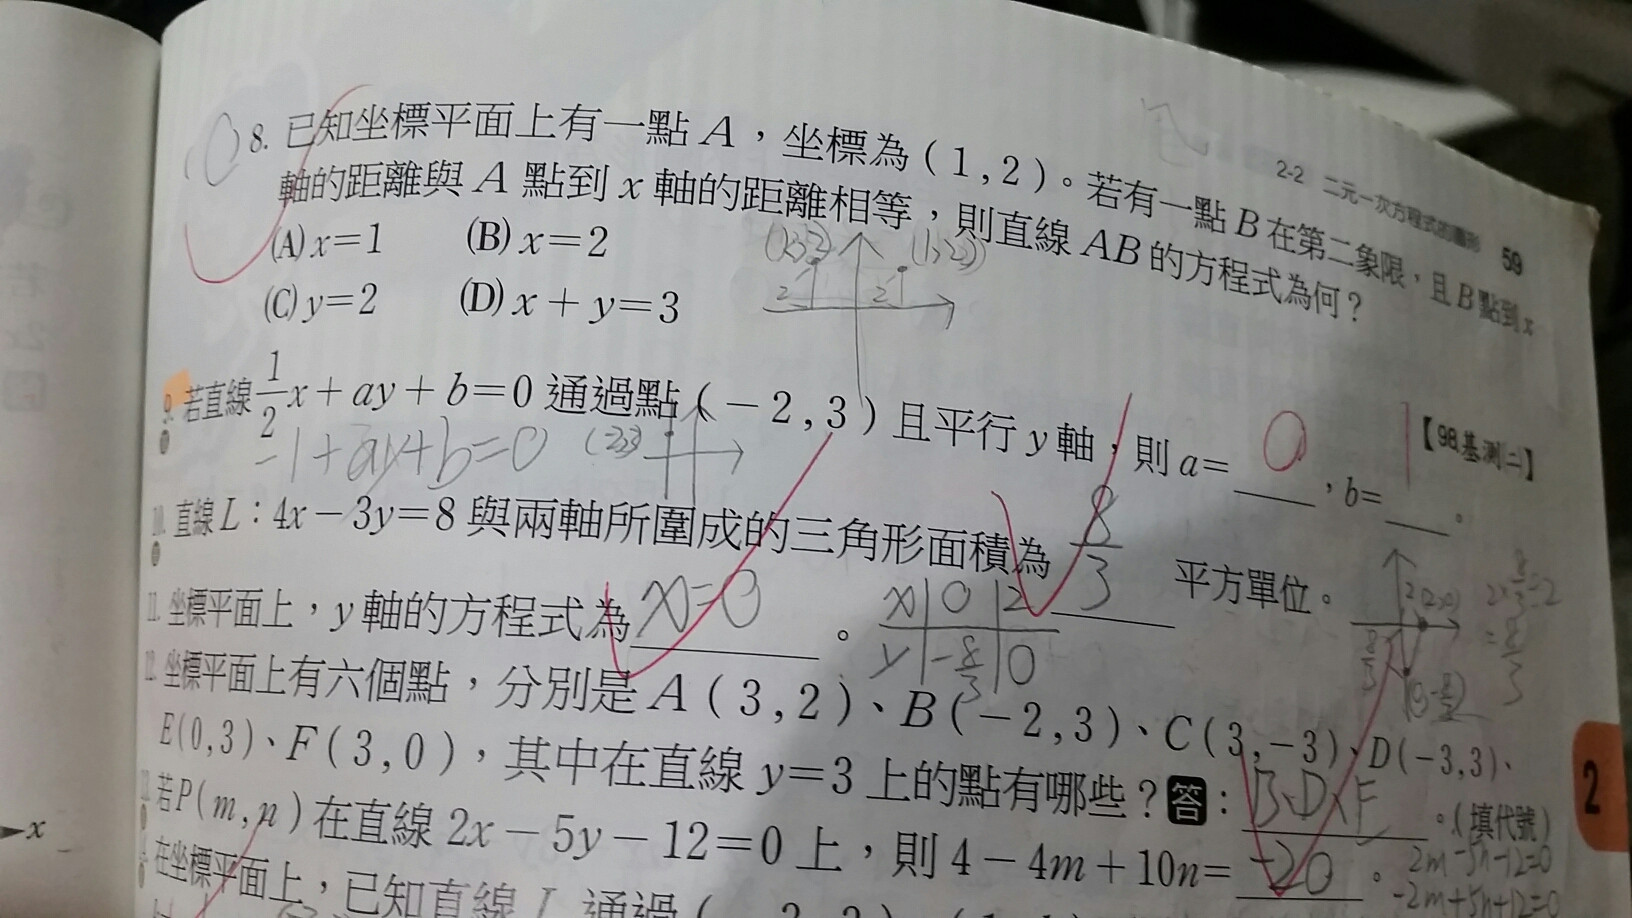 2-2 二元一次方程式的圖形 59
8. 已知坐標平面上有一點 A，坐標為 ( 1 , 2 )。若有一點 B 在第二象限，且 B 點到 x
軸的距離與 A 點到 x 軸的距離相等，則直線 AB 的方程式為何？
(A) x＝1 (B) x＝2
(C) y＝2 (D) x＋y＝3
2 2
【98.基測(二)】
9. 若直線 1/2 x＋ay＋b＝0 通過點 (－2 , 3 ) 且平行 y 軸，則 a＝ 0 ，b＝ 1 。
-1+ay+b=0
10. 直線 L：4x－3y＝8 與兩軸所圍成的三角形面積為 8/3 平方單位。
x 0 2
y -8/3 0
11. 坐標平面上，y 軸的方程式為 x=0 。
12. 坐標平面上有六個點，分別是 A ( 3 , 2 )、B (－2 , 3 )、C ( 3 ,－3 )、D (－3 , 3 )、
E ( 0 , 3 )、F ( 3 , 0 )，其中在直線 y＝3 上的點有哪些？答：B、D、E 。(填代號)
13. 若 P ( m , n ) 在直線 2x－5y－12＝0 上，則 4－4m＋10n＝ -20 。
2m-5n-12=0
-2m+5n+12=0
在坐標平面上，已知直線 L 通過
2
x